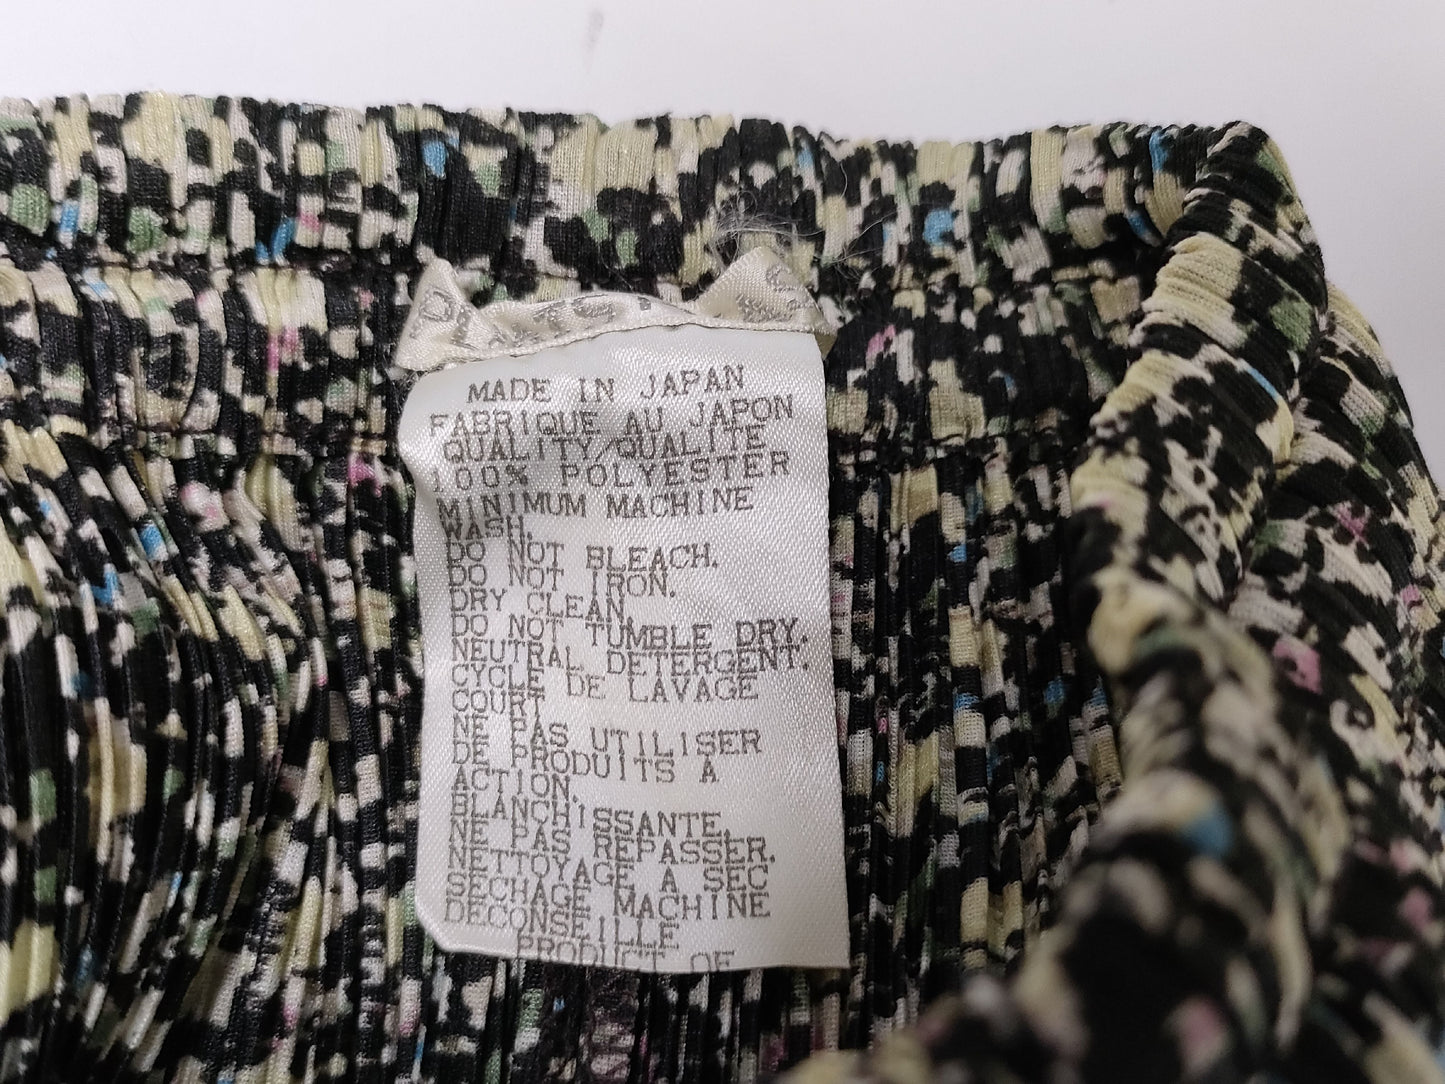 MADE IN JAPAN
FABRIQUE AU JAPON
QUALITY/QUALITE
100% POLYESTER
MINIMUM MACHINE
WASH.
DO NOT BLEACH.
DO NOT IRON.
DRY CLEAN
DO NOT TUMBLE DRY.
NEUTRAL DETERGENT.
CYCLE DE LAVAGE
COURT
NE PAS UTILISER
DE PRODUITS A
ACTION.
BLANCHISSANTE.
NE PAS REPASSER.
NETTOYAGE A SEC
SECHAGE MACHINE
DECONSEILLE
PRODUCT OF